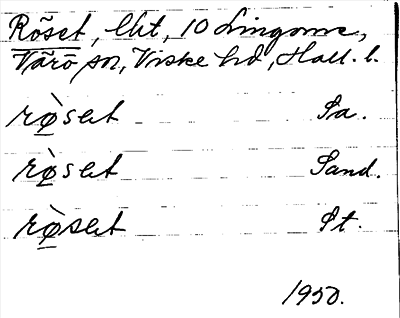 Röset, lht, 10 Lingome,
Värö sn, Viske hd, Hall. l.
rø̀set Sa.
rø̀set Sand.
rø̀set St.
1950.